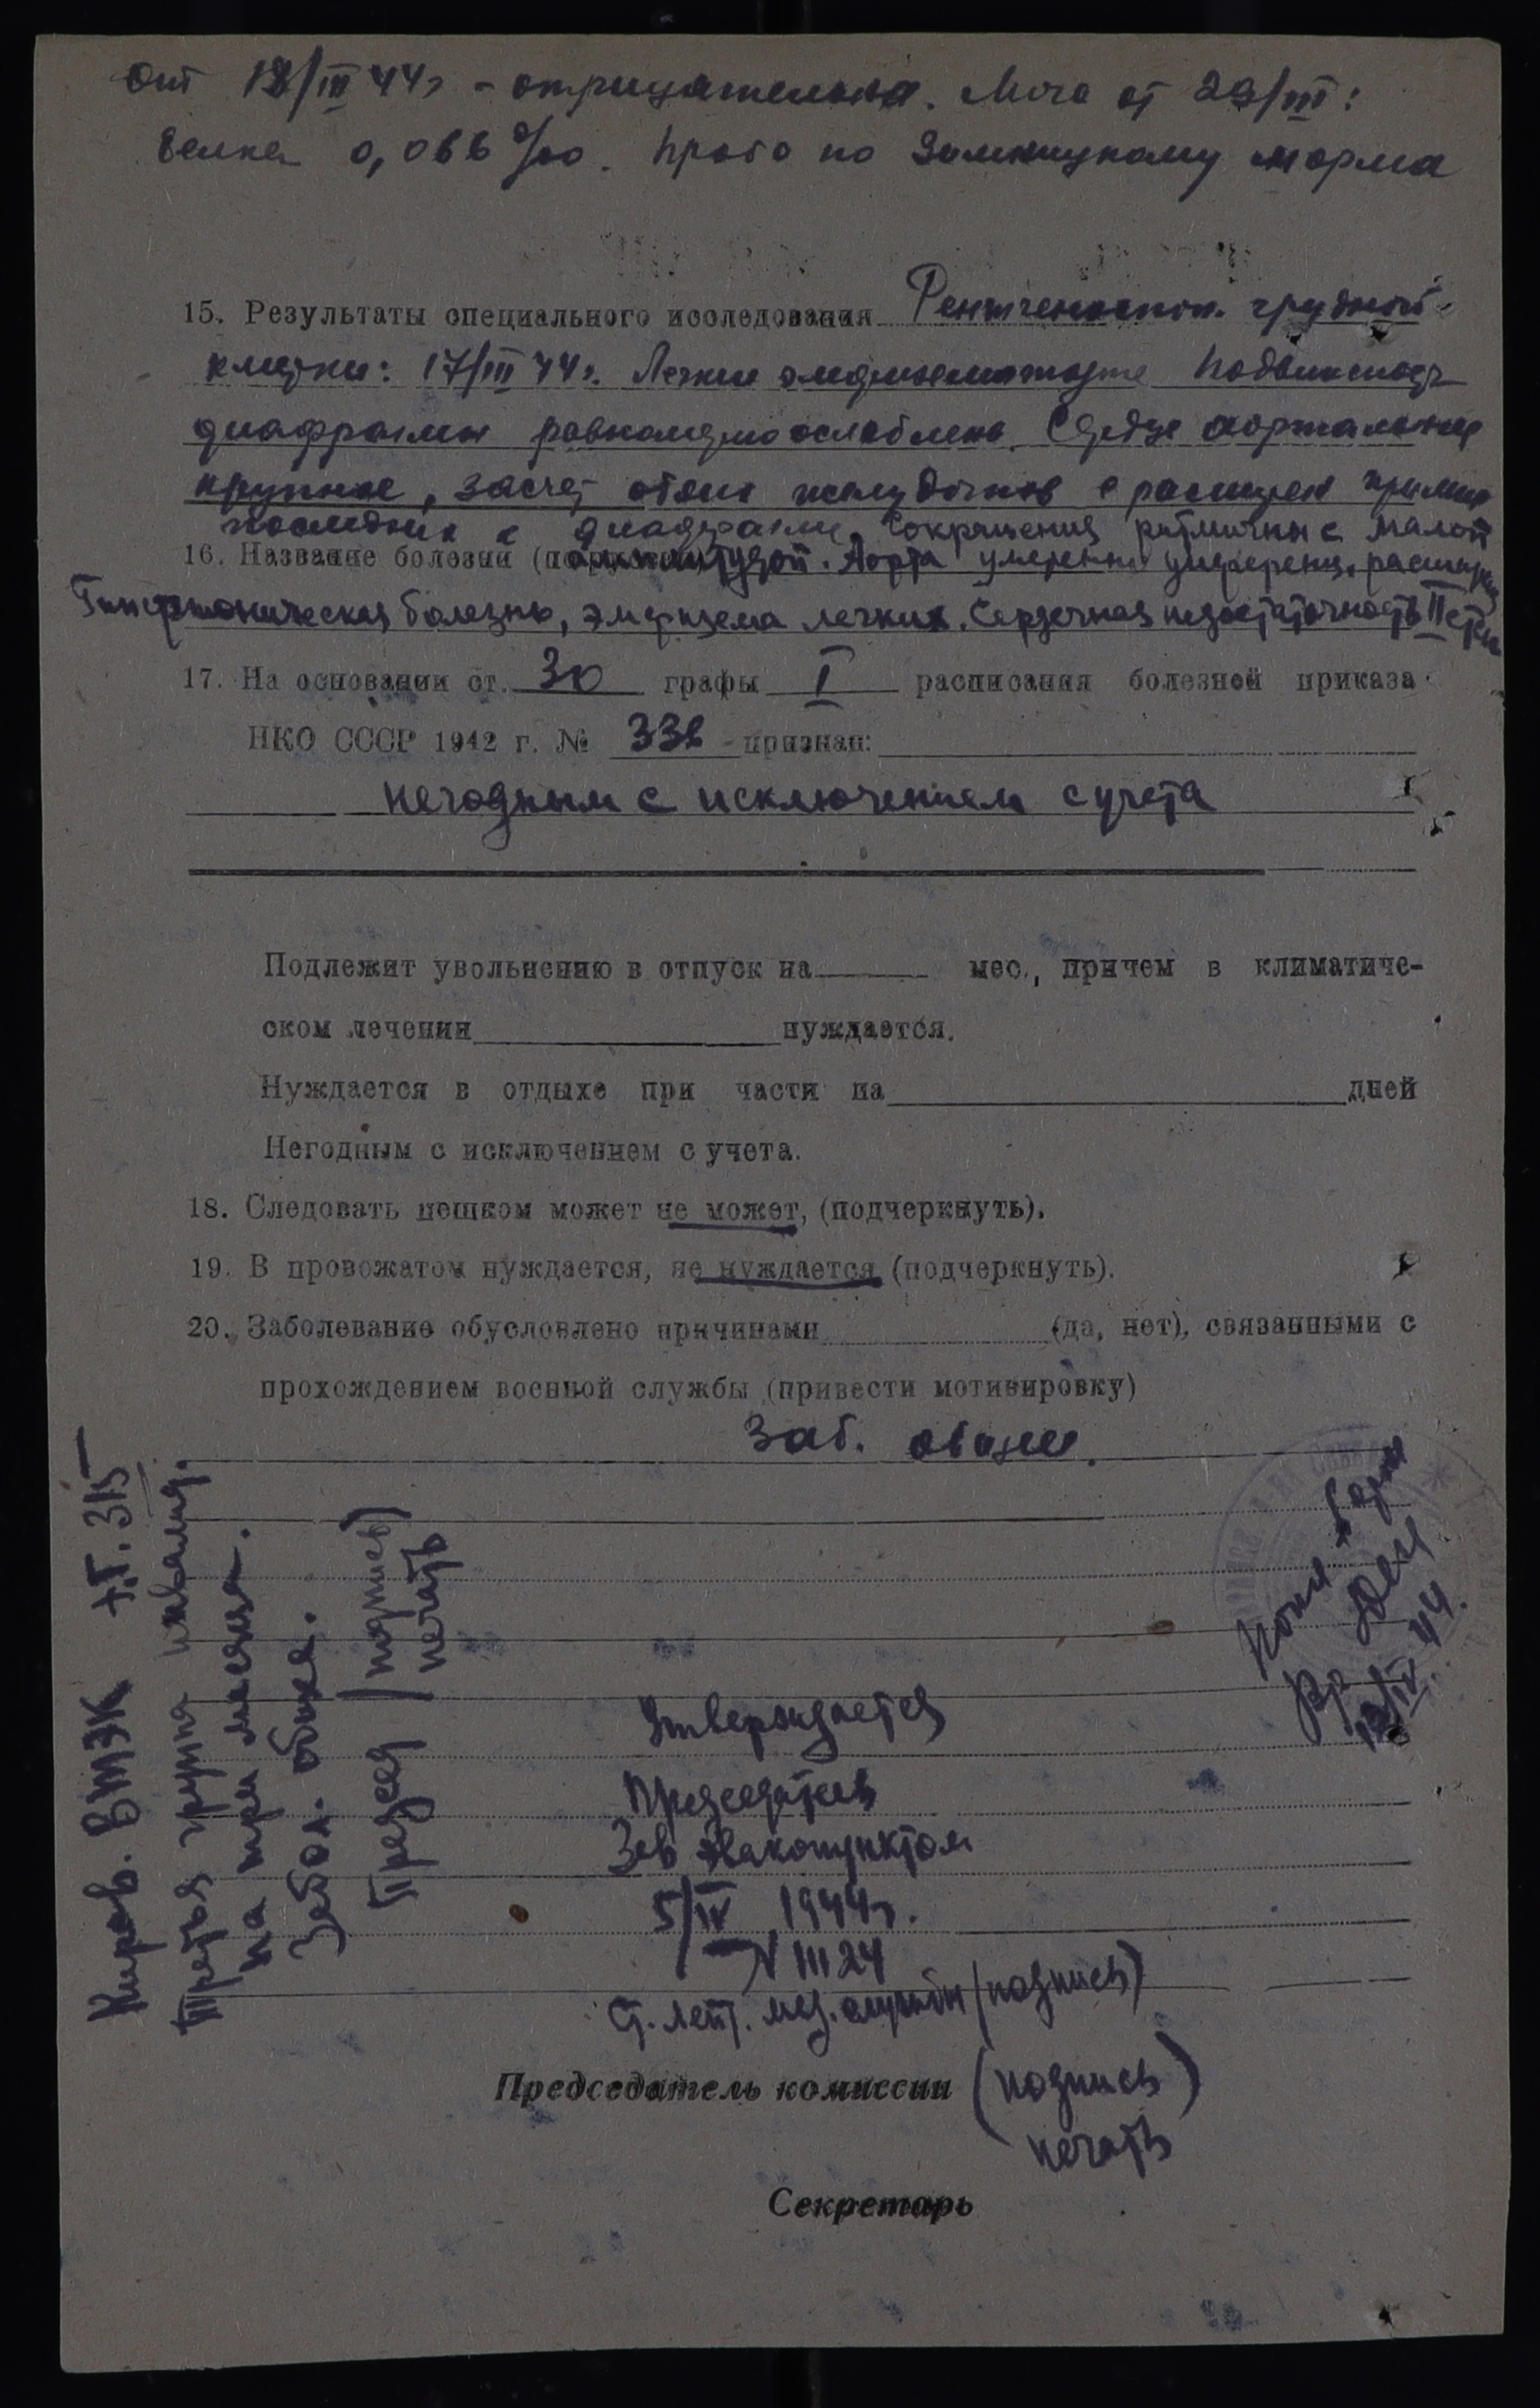 От 18/III 44г - отрицательна. Моча от 29/III:
белка 0,066 ‰. Проба по Зимницкому норма
15. Результаты специального исследования Рентгеноскоп. грудной
клетки: 17/III 44г. Легкие эмфизематозные Подвижность
диафрагмы равномерно ослаблена. Сердце аортальное
крупное, засчет обоих желудочков с расширен
последних к диафрагме. Сокращения ритмичны с малой
16. Название болезни амплитудой. Аорта умеренно расширена
Гипертоническая болезнь, эмфизема легких. Сердечная недостаточность II ст
17. На основании ст. 30 графы I расписания болезней приказа
НКО СССР 1942 г. № 336 признан:
негодным с исключением с учета
Подлежит увольнению в отпуск на мес., причем в климатиче-
ском лечении нуждается.
Нуждается в отдыхе при части на дней
Негодным с исключением с учета.
18. Следовать пешком может не может, (подчеркнуть).
19. В провожатом нуждается, не нуждается (подчеркнуть).
20. Заболевание обусловлено причинами (да, нет), связанными с
прохождением военной службы (привести мотивировку)
Заб. общее.
Киров. ВТЭК
Третья группа инвалид.
на три месяца.
Забол. общее.
Председ (подпись)
печать
Утверждается
Председатель
Зав Эвакопунктом
5/IV 1944г.
N 1124
Ст. лейт. мед. службы (подпись)
Копия верна
12/IV 44.
Председатель комиссии (подпись)
печать
Секретарь